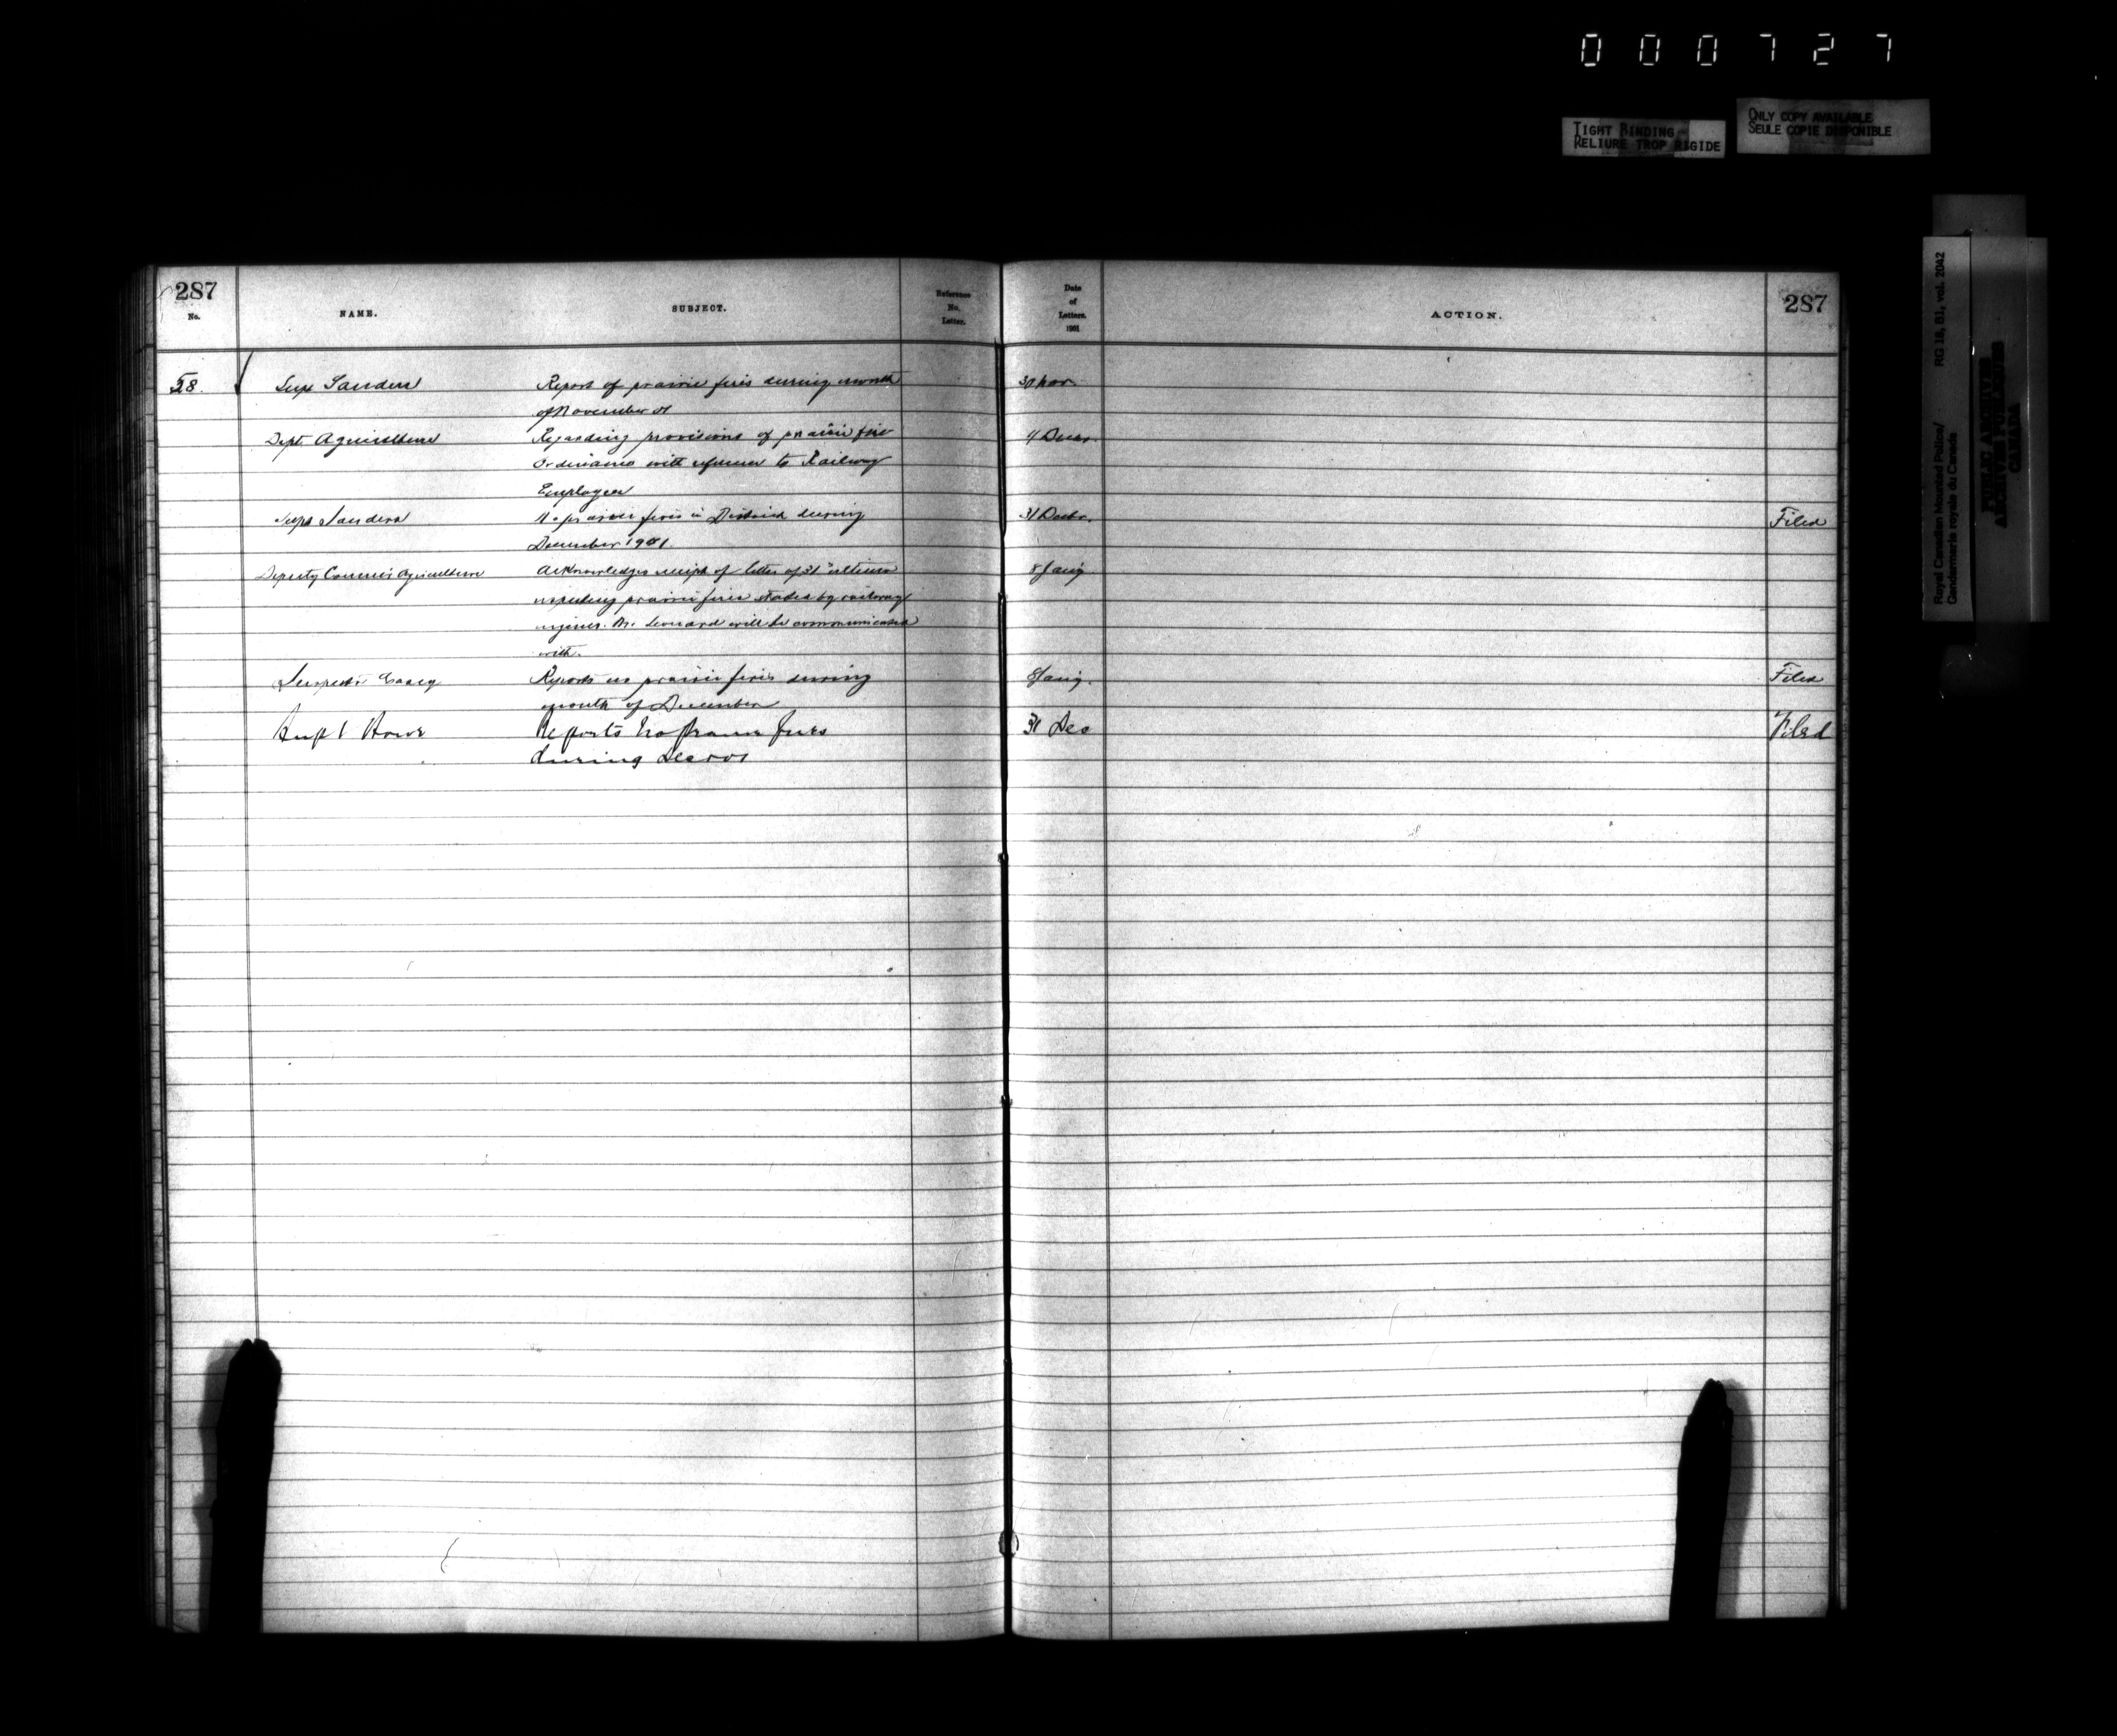 000727
TIGHT BINDING
RELIURE TROP RIGIDE
ONLY COPY AVAILABLE
SEULE COPIE DISPONIBLE
Royal Canadian Mounted Police/ RG 18, B1, vol. 2042
Gendarmerie royale du Canada
PUBLIC ARCHIVES
ARCHIVES PUBLIQUES
CANADA
287 287
No. NAME. SUBJECT. Reference No. Letter. Date of Letters. 1901 ACTION.
58. Supt Sanders Report of prairie fires during month 30 Nov.
of November 01
Dept. Agriculture Regarding provisions of prairie fire Decr.
Ordinance with reference to Railway
Employees
Supt Sanders No prairie fires in District during 31 Decbr. Filed
December 1901.
Deputy Commr Agriculture Acknowledges receipt of letter of 31" ultimo 8 Jany
respecting prairie fires started by railway
engines. Mr. Leonard will be communicated
with.
Inspector Casey Reports no prairie fires during 8 Jany. Filed
month of December
Supt Howe Reports no prairie fires 31 Dec Filed
during Dec 01